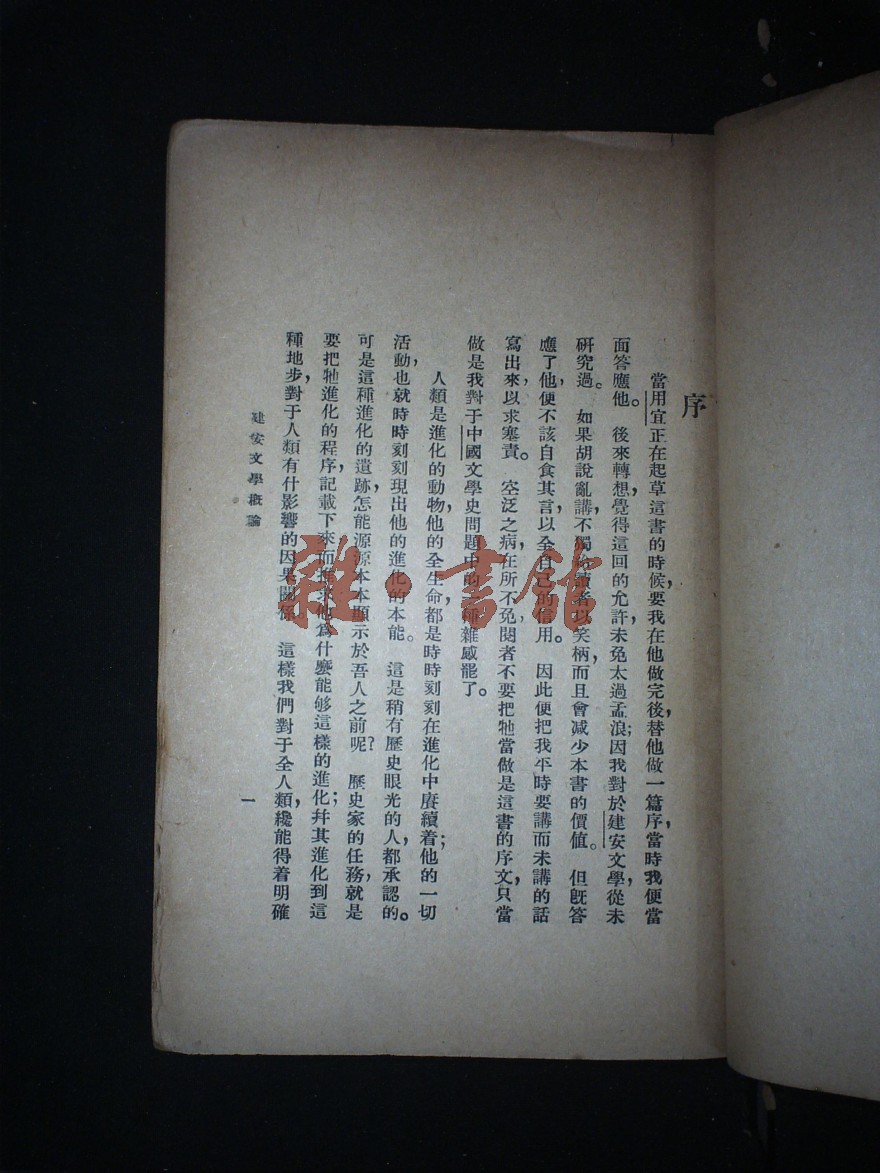 序
當用宜正在起草這書的時候，要我在他做完後，替他做一篇序，當時我便當
面答應他。後來轉想，覺得這回的允許，未免太過孟浪；因我對於建安文學，從未
研究過。如果胡說亂講，不獨給讀者以笑柄，而且會減少本書的價值。但旣答
應了他，便不該自食其言，以全自己的信用。因此便把我平時要講而未講的話
寫出來，以求塞責。空泛之病，在所不免，閱者不要把牠當做是這書的序文，只當
做是我對于中國文學史問題中的一部雜感罷了。
人類是進化的動物，他的全生命，都是時時刻刻在進化中賡續着；他的一切
活動，也就時時刻刻現出他的進化的本能。這是稍有歷史眼光的人，都承認的。
可是這種進化的遺跡，怎能源源本本顯示於吾人之前呢？歷史家的任務，就是
要把牠進化的程序，記載下來，而推求他爲什麼能够這樣的進化；幷其進化到這
種地步，對于人類有什影響的因果關係。這樣我們對于全人類，纔能得着明確
建安文學槪論
一
雜·書館